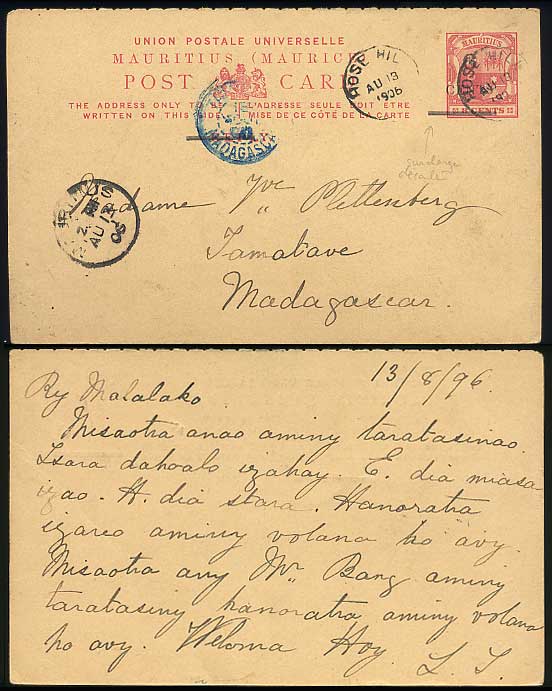 UNION POSTALE UNIVERSELLE
MAURITIUS (MAURICE)
POST CARD
THE ADDRESS ONLY TO BE WRITTEN ON THIS SIDE
L'ADRESSE SEULE DOIT ETRE MISE DE CE CÔTÉ DE LA CARTE
MAURITIUS
CENTS
ROSE HILL
AU 13
1906
ROSE HILL
AU 13
MADAGASCAR
MAURITIUS
AU 13
06
surcharge
décalée
Madame Vve Plettenberg
Tamatave
Madagascar.
13/8/96.
Ry Malalako
Misaotra anao aminy taratasinao.
Tsara daholo izahay. E. dia miasa
izao. H. dia stara. Hanoratra
izareo aminy volana ho avy.
Misaotra any Mr. Bang aminy
taratasiny hanoratra aminy volana
ho avy. Veloma Hoy L. S.